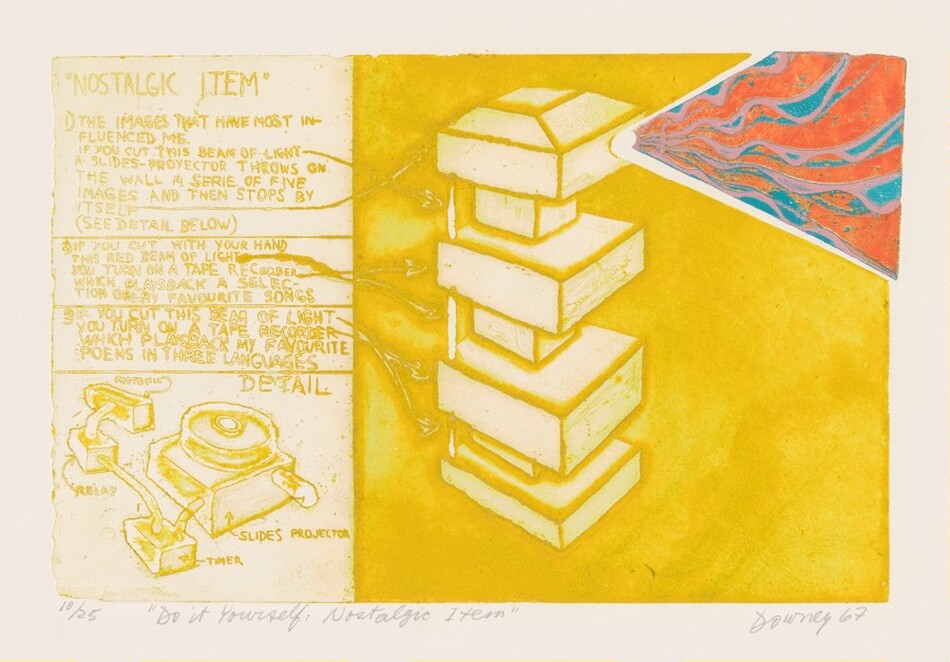 "NOSTALGIC ITEM"
1) THE IMAGES THAT HAVE MOST IN-
FLUENCED ME.
IF YOU CUT THIS BEAM OF LIGHT
A SLIDES-PROJECTOR THROWS ON
THE WALL A SERIE OF FIVE
IMAGES AND THEN STOPS BY
ITSELF
(SEE DETAIL BELOW)
2) IF YOU CUT WITH YOUR HAND
THIS RED BEAM OF LIGHT
YOU TURN ON A TAPE RECORDER
WHICH PLAYSBACK A SELEC-
TION OF MY FAVOURITE SONGS
3) IF YOU CUT THIS BEAM OF LIGHT
YOU TURN ON A TAPE RECORDER
WHICH PLAYSBACK MY FAVOURITE
POEMS IN THREE LANGUAGES
DETAIL
PHOTOCELL
RELAY
SLIDES PROJECTOR
TIMER
10/25 "Do it Yourself, Nostalgic Item" Downey 67